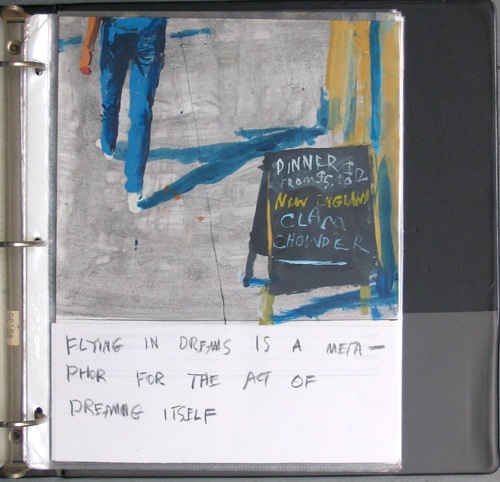 DINNER
FROM $5.
NEW ENGLAND
CLAM
CHOWDER
FLYING IN DREAMS IS A META-
PHOR FOR THE ACT OF
DREAMING ITSELF